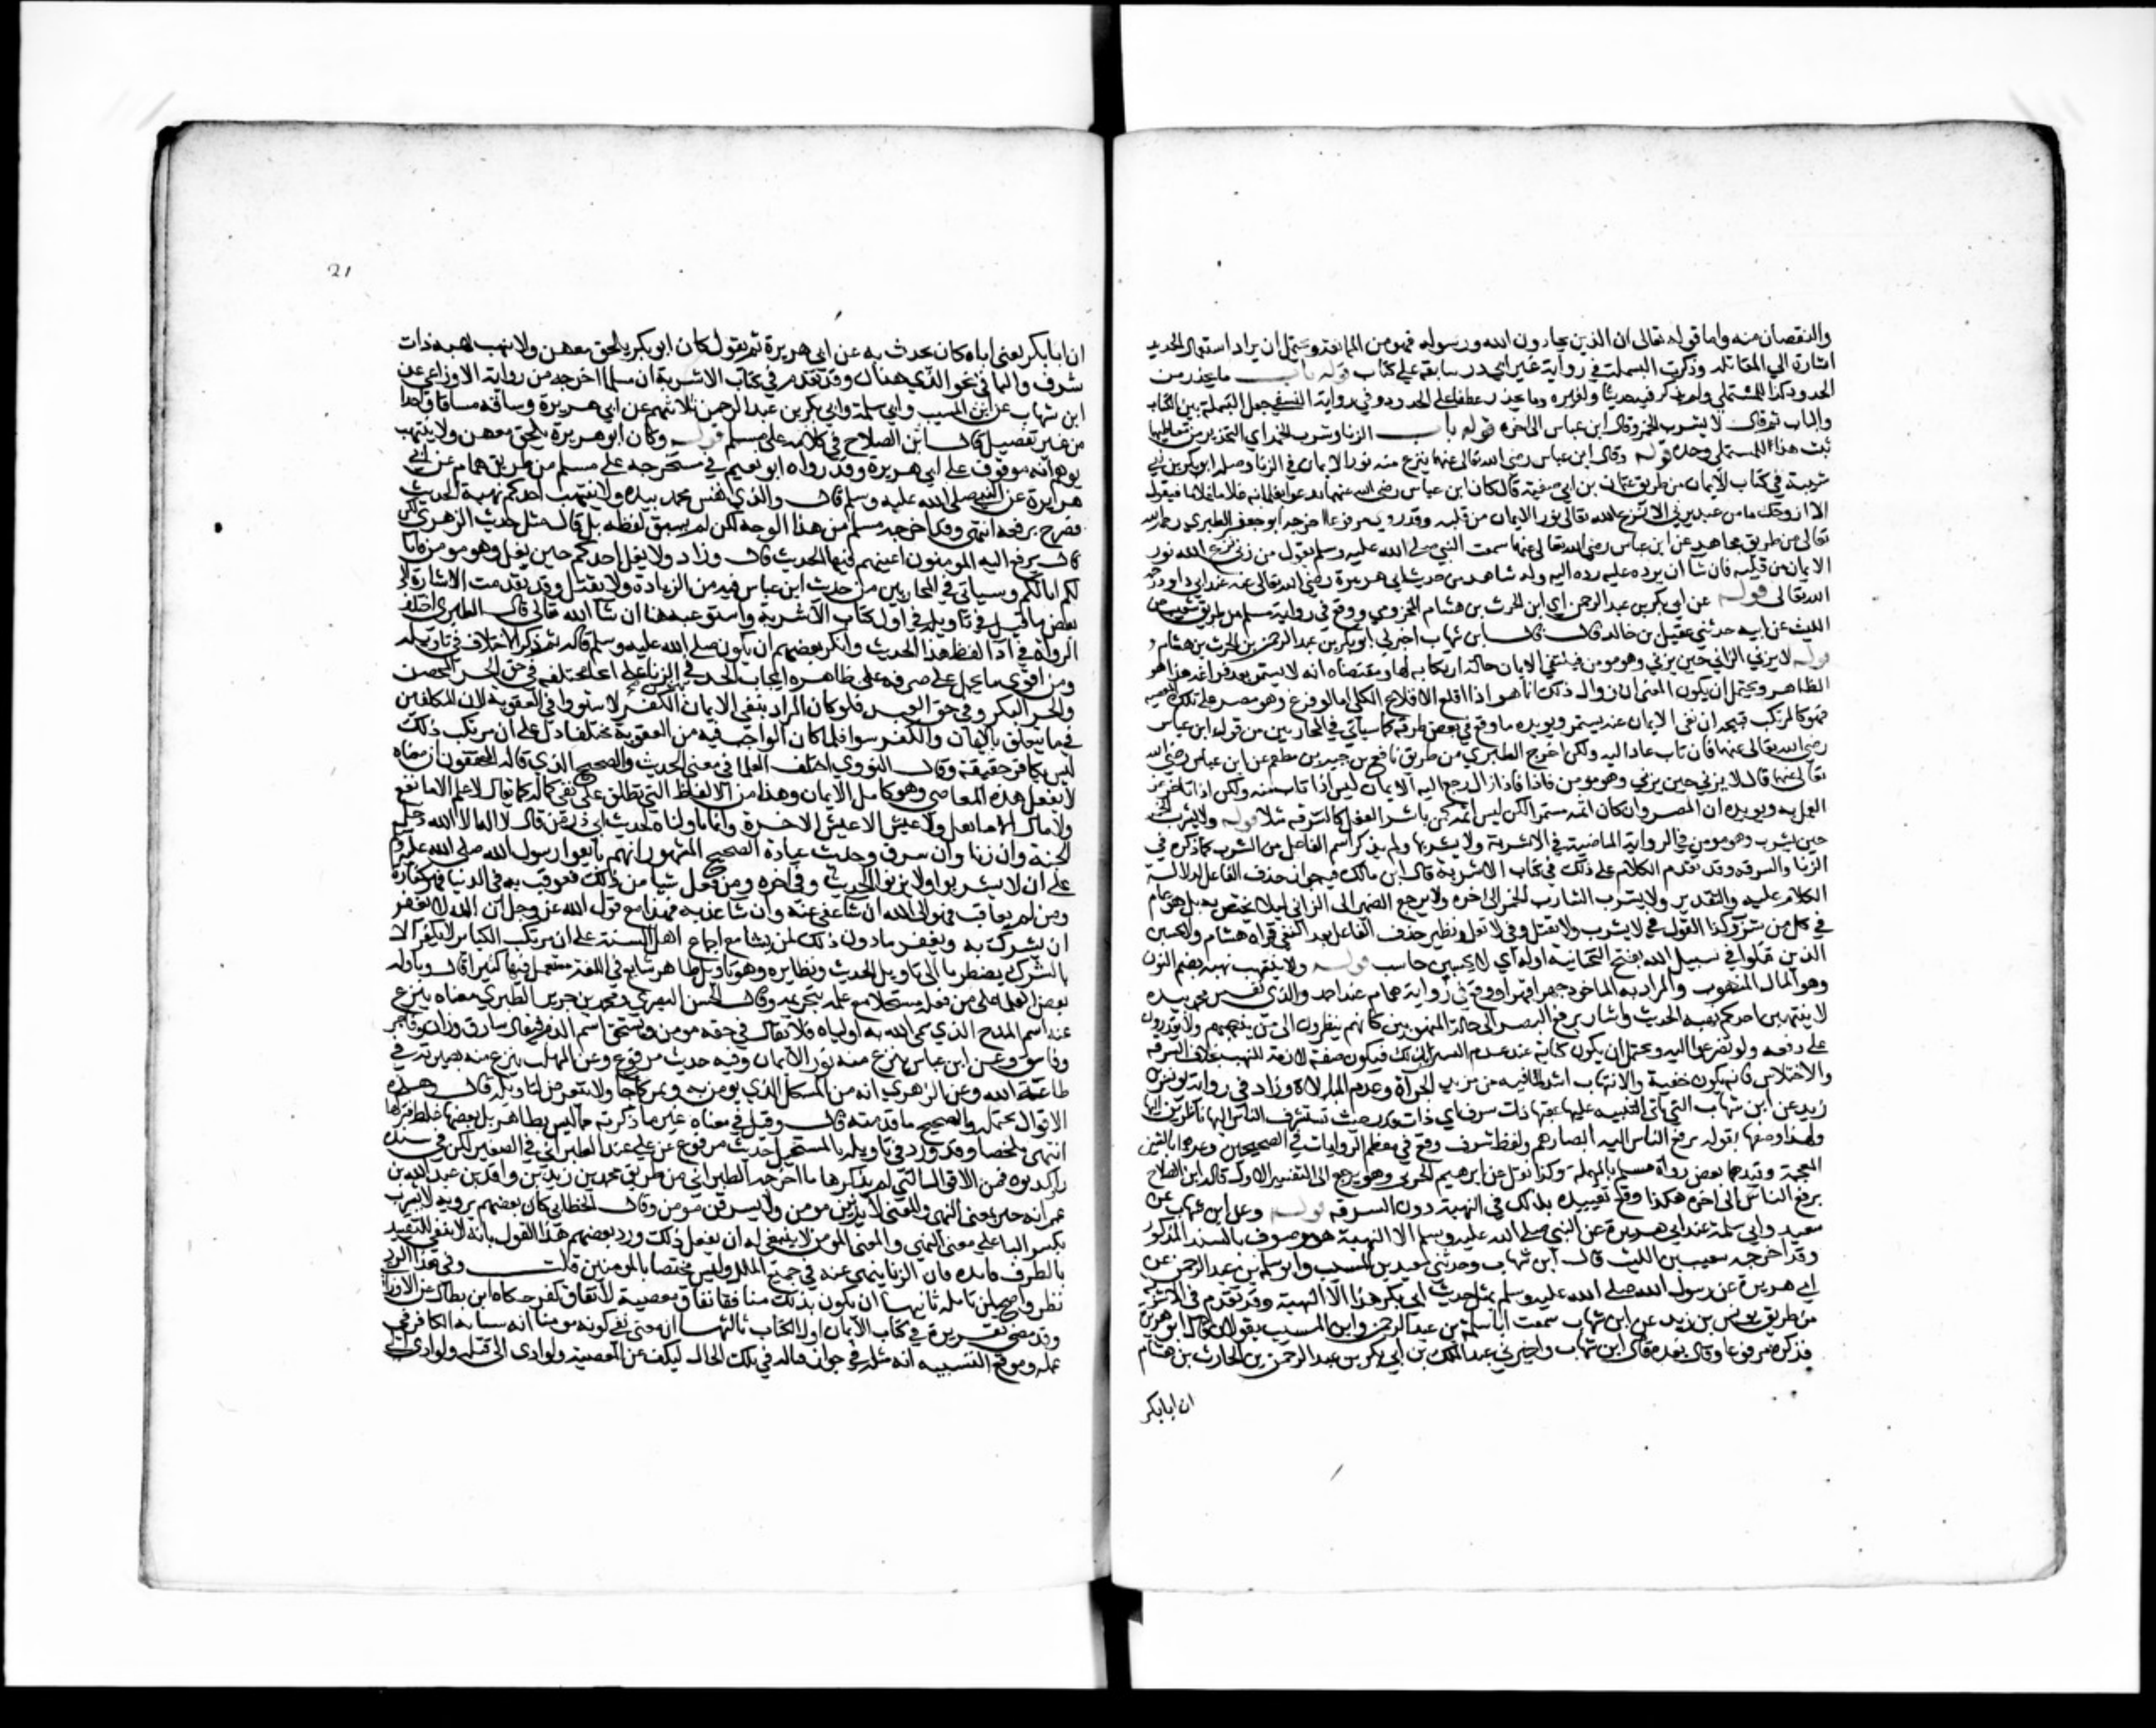 والنقصان منه واما قوله تعالى ان الذين يحاربون الله ورسوله فهو من الممانعة ويحتمل ان يراد استعمال الحديد
اشارة الي المقاتلة وذكرت البسملة في رواية غير ابي ذر سابقة على كتاب قوله باب ما يحذر من
الحدود كذا للمستملي ولم يذكر فيه حديثا ولغيره وما يحذر عطفا على الحدود وفي رواية النسفي جعل البسملة بين الكتاب
والباب ثم قال لا يشرب الخمر وقال ابن عباس الى اخره قوله باب الزنا وشرب الخمر اي التحذير من تعاطيهما
ثبت هذا للمستملي وحده قوله وقال ابن عباس رضي الله تعالى عنهما ينزع منه نور الايمان في الزنا وصله ابو بكر بن ابي
شيبة في كتاب الايمان من طريق عثمان بن ابي صفية قال كان ابن عباس رضي الله عنهما يدعو غلمانه غلاما غلاما فيقول
الا ازوجك ما من عبد يزني الا نزع الله تعالى نور الايمان من قلبه وقد روي مرفوعا اخرجه ابو جعفر الطبري رحمه الله
تعالى من طريق مجاهد عن ابن عباس رضي الله تعالى عنهما سمعت النبي صلى الله عليه وسلم يقول من زنى نزع الله نور
الايمان من قلبه فان شا ان يرده عليه رده اليه وله شاهد من حديث ابي هريرة رضي الله تعالى عنه عند ابي داود رحمه
الله تعالى قوله عن ابي بكر بن عبد الرحمن اي ابن الحرث بن هشام المخزومي ووقع في رواية مسلم من طريق شعيب بن
الليث عن ابيه حدثني عقيل بن خالد قال قال ابن شهاب اخبرني ابو بكر بن عبد الرحمن بن الحرث بن هشام
قوله لا يزني الزاني حين يزني وهو مومن قيد نفي الايمان بحالة ارتكابه لها ومقتضاه انه لا يستمر بعد فراغه هذا هو
الظاهر ويحتمل ان يكون المعنى ان زوال ذلك انما هو اذا اقلع الاقلاع الكلي اما لو فرغ وهو مصر على تلك المعصية
فهو كالمرتكب فيتجه ان نفي الايمان عنه يستمر ويويده ما وقع في بعض طرقه كما سياتي في المحاربين من قول ابن عباس
رضي الله تعالى عنهما فان تاب عاد اليه ولكن اخرج الطبري من طريق نافع بن جبير بن مطعم عن ابن عباس رضي الله
تعالى عنهما قال لا يزني حين يزني وهو مومن فاذا زال رجع اليه الايمان ليس اذا تاب منه ولكن اذا تاخر عن
العمل به ويويده ان المصر وان كان اثمه مستمرا لكن ليس اثمه كمن باشر الفعل كالسرقة مثلا قوله ولا يشرب الخمر
حين يشرب وهو مومن في الرواية الماضية في الاشربة ولا يشربها ولم يذكر اسم الفاعل من الشرب كما ذكره في
الزنا والسرقة وقد تقدم الكلام على ذلك في كتاب الاشربة قال ابن مالك فيه جواز حذف الفاعل لدلالة
الكلام عليه والتقدير ولا يشرب الشارب الخمر الى اخره ولا يرجع الضمير الى الزاني ليلا يختص به بل هو عام
في كل من شرب وكذا القول في لا يشرب ولا يقتل وفي لا يغل ونظير حذف الفاعل بعد النفي قراه هشام ولا يحسبن
الذين قتلوا في سبيل الله بفتح التحتانية اوله اي لا يحسبن حاسب قوله ولا ينتهب نهبة بضم النون
وهو المال المنهوب والمراد به الماخوذ جهرا قهرا ووقع في رواية همام عند احمد والذي نفس محمد بيده
لا ينتهبن احدكم نهبة الحديث واشار برفع البصر الى حالة المنهوبين كانهم ينظرون الى من ينهبهم ولا يقدرون
على دفعه ولو تضرعوا اليه ويحتمل ان يكون كناية عن عدم التستر بذلك فيكون صفة لازمة للنهب بخلاف السرقة
والاختلاس فانه يكون خفية والانتهاب اشد لما فيه من مزيد الجرآة وعدم المبالاة وزاد في رواية يونس بن
زيد عن ابن شهاب التي ياتي التنبيه عليها عقبها ذات شرف اي ذات قدر حيث تستشرف الناس اليها ناظرين اليها
ولهذا وصفها بقوله يرفع الناس اليه ابصارهم ولفظ شرف وقع في معظم الروايات في الصحيحين وغيرهما بالشين
المعجمة وقيدها بعض رواة مسلم بالمهملة وكذا نقل عن ابرهيم الحربي وهو يرجع الى التفسير الاول قاله ابن الصلاح
يرفع الناس الى اخره هكذا وقع تقييده بذلك في النهبة دون السرقة قوله وعن ابن شهاب عن
سعيد وابي سلمة عن ابي هريرة عن النبي صلى الله عليه وسلم الا النهبة هو موصوف بالسند المذكور
وقد اخرجه شعيب بن الليث قال ابن شهاب وحدثني سعيد بن المسيب وابو سلمة بن عبد الرحمن عن
ابي هريرة عن رسول الله صلى الله عليه وسلم بمثل حديث ابي بكر هذا الا النهبة وقد تقدم في الاشربة
من طريق يونس بن زيد عن ابن شهاب سمعت ابا سلمة بن عبد الرحمن وابن المسيب يقولان قال ابو هريرة
فذكره مرفوعا وقال بعده قال ابن شهاب واخبرني عبد الملك بن ابي بكر بن عبد الرحمن بن الحارث بن هشام
ان ابا بكر
21
ان ابا بكر يعني اباه كان يحدث به عن ابي هريرة ثم يقول كان ابو بكر يلحق معهن ولا ينهب نهبة ذات
شرف والباقي نحو الذي هنا وقد تقدم في كتاب الاشربة ان مسلما اخرجه من رواية الاوزاعي عن
ابن شهاب عن ابن المسيب وابي سلمة وابي بكر بن عبد الرحمن ثلاثتهم عن ابي هريرة وساقه مساقا واحدا
من غير تفصيل قال ابن الصلاح في كلامه على مسلم قوله وكان ابو هريرة يلحق معهن ولا ينتهب
يوهم انه موقوف على ابي هريرة وقد رواه ابو نعيم في مستخرجه على مسلم من طريق همام عن ابي
هريرة عن النبي صلى الله عليه وسلم قال والذي نفس محمد بيده ولا ينتهب احدكم نهبة الحديث
فصرح برفعه انتهى وقد اخرجه مسلم من هذا الوجه لكن لم يسق لفظه بل قال مثل حديث الزهري لكن
قال يرفع اليه المومنون اعينهم فيها الحديث قال وزاد ولا يغل احدكم حين يغل وهو مومن فايا
كم اياكم وسياتي في المحاربين من حديث ابن عباس فيه من الزيادة ولا يقتل وقد تقدمت الاشارة الى
بعض ما قيل في تاويله في اول كتاب الاشربة واستوعبه هنا ان شا الله تعالى قال الطبري اختلف
الرواة في ادآ لفظ هذا الحديث وانكر بعضهم ان يكون صلى الله عليه وسلم قاله ثم ذكر الاختلاف في تاويله
ومن اقوى ما يحمل على صرفه على ظاهره ايجاب الحد في الزنا على انحا مختلفة في حق الحر المحصن
والحر البكر وفي حق العبد فلو كان المراد بنفي الايمان الكفر لاستووا في العقوبة لان المكلفين
فيما يتعلق بالايمان والكفر سوا فلما كان الواجب فيه من العقوبة مختلفا دل على ان مرتكب ذلك
ليس بكافر حقيقة وقال النووي اختلف العلما في معنى الحديث والصحيح الذي قاله المحققون ان معناه
لا يفعل هذه المعاصي وهو كامل الايمان وهذا من الالفاظ التي تطلق على نفي كماله كما يقال لا علم الا ما نفع
ولا مال الا ما يغل ولا عيش الا عيش الاخرة وانما تاولناه لحديث ابي ذر من قال لا اله الا الله دخل
الجنة وان زنا وان سرق وحديث عبادة الصحيح المشهور انهم بايعوا رسول الله صلى الله عليه وسلم
على ان لا يسرقوا ولا يزنوا الحديث وفي اخره ومن فعل شيا من ذلك فعوقب به في الدنيا فهو كفارة
ومن لم يعاقب فهو الى الله ان شا عفى عنه وان شا عذبه فهذا مع قول الله عز وجل ان الله لا يغفر
ان يشرك به ويغفر ما دون ذلك لمن يشا مع اجماع اهل السنة على ان مرتكب الكباير لا يكفر الا
بالشرك يضطرنا الى تاويل الحديث ونظايره وهو تاويل ظاهر شايع في اللغة مستعمل فيها كثيرا قال وتاوله
بعض العلما على من فعله مستحلا مع علمه بتحريمه وقال الحسن البصري ومحمد بن جرير الطبري معناه ينزع
عنه اسم المدح الذي سمى الله به اولياه فلا يقال في حقه مومن ويستحق اسم الذم فيقال سارق وزان وفاجر
وفاسق وعن ابن عباس ينزع منه نور الايمان وفيه حديث مرفوع وعن المهلب ينزع منه بصيرته في
طاعة الله وعن الزهري انه من المشكل الذي يومن به ويمر كما جا ولا يتعرض لتاويله قال وهذه
الاقوال محتملة والصحيح ما قدمته قال وقيل في معناه غير ما ذكرته مما ليس بظاهر بل بعضها غلط فتركها
انتهى ملخصا وقد ورد في تاويله بالمستحل حديث مرفوع عن علي عند الطبراني في الصغير لكن في سنده
راو كذبوه فمن الاقوال التي لم يذكرها ما اخرجه الطبراني من طريق محمد بن زيد بن واقد بن عبد الله بن
عمر انه خبر بمعنى النهي والمعنى لا يزنين مومن ولا يسرقن مومن وقال الخطابي كان بعضهم يرويه لا يشرب
بكسر البا على معنى النهي والمعنى المومن لا ينبغي له ان يفعل ذلك ورد بعضهم هذا القول بانه لا يبقى للتقييد
بالظرف فايده فان الزنا ينهى عنه في جميع الملل وليس مختصا بالمومنين قلت وفي هذا الرد
نظر واضح لمن تامله ثانيها ان يكون بذلك منافقا نفاق معصية لا نفاق كفر حكاه ابن بطال عن الاوزاعي
وقد مضى تقريره في كتاب الايمان اول الكتاب ثالثها ان معنى نفي كونه مومنا انه شابه الكافر في
عمله وموقع التشبيه انه مثله في جواز قتاله في تلك الحالة ليكف عن المعصية ولو ادى الى قتله ولو ادى الى